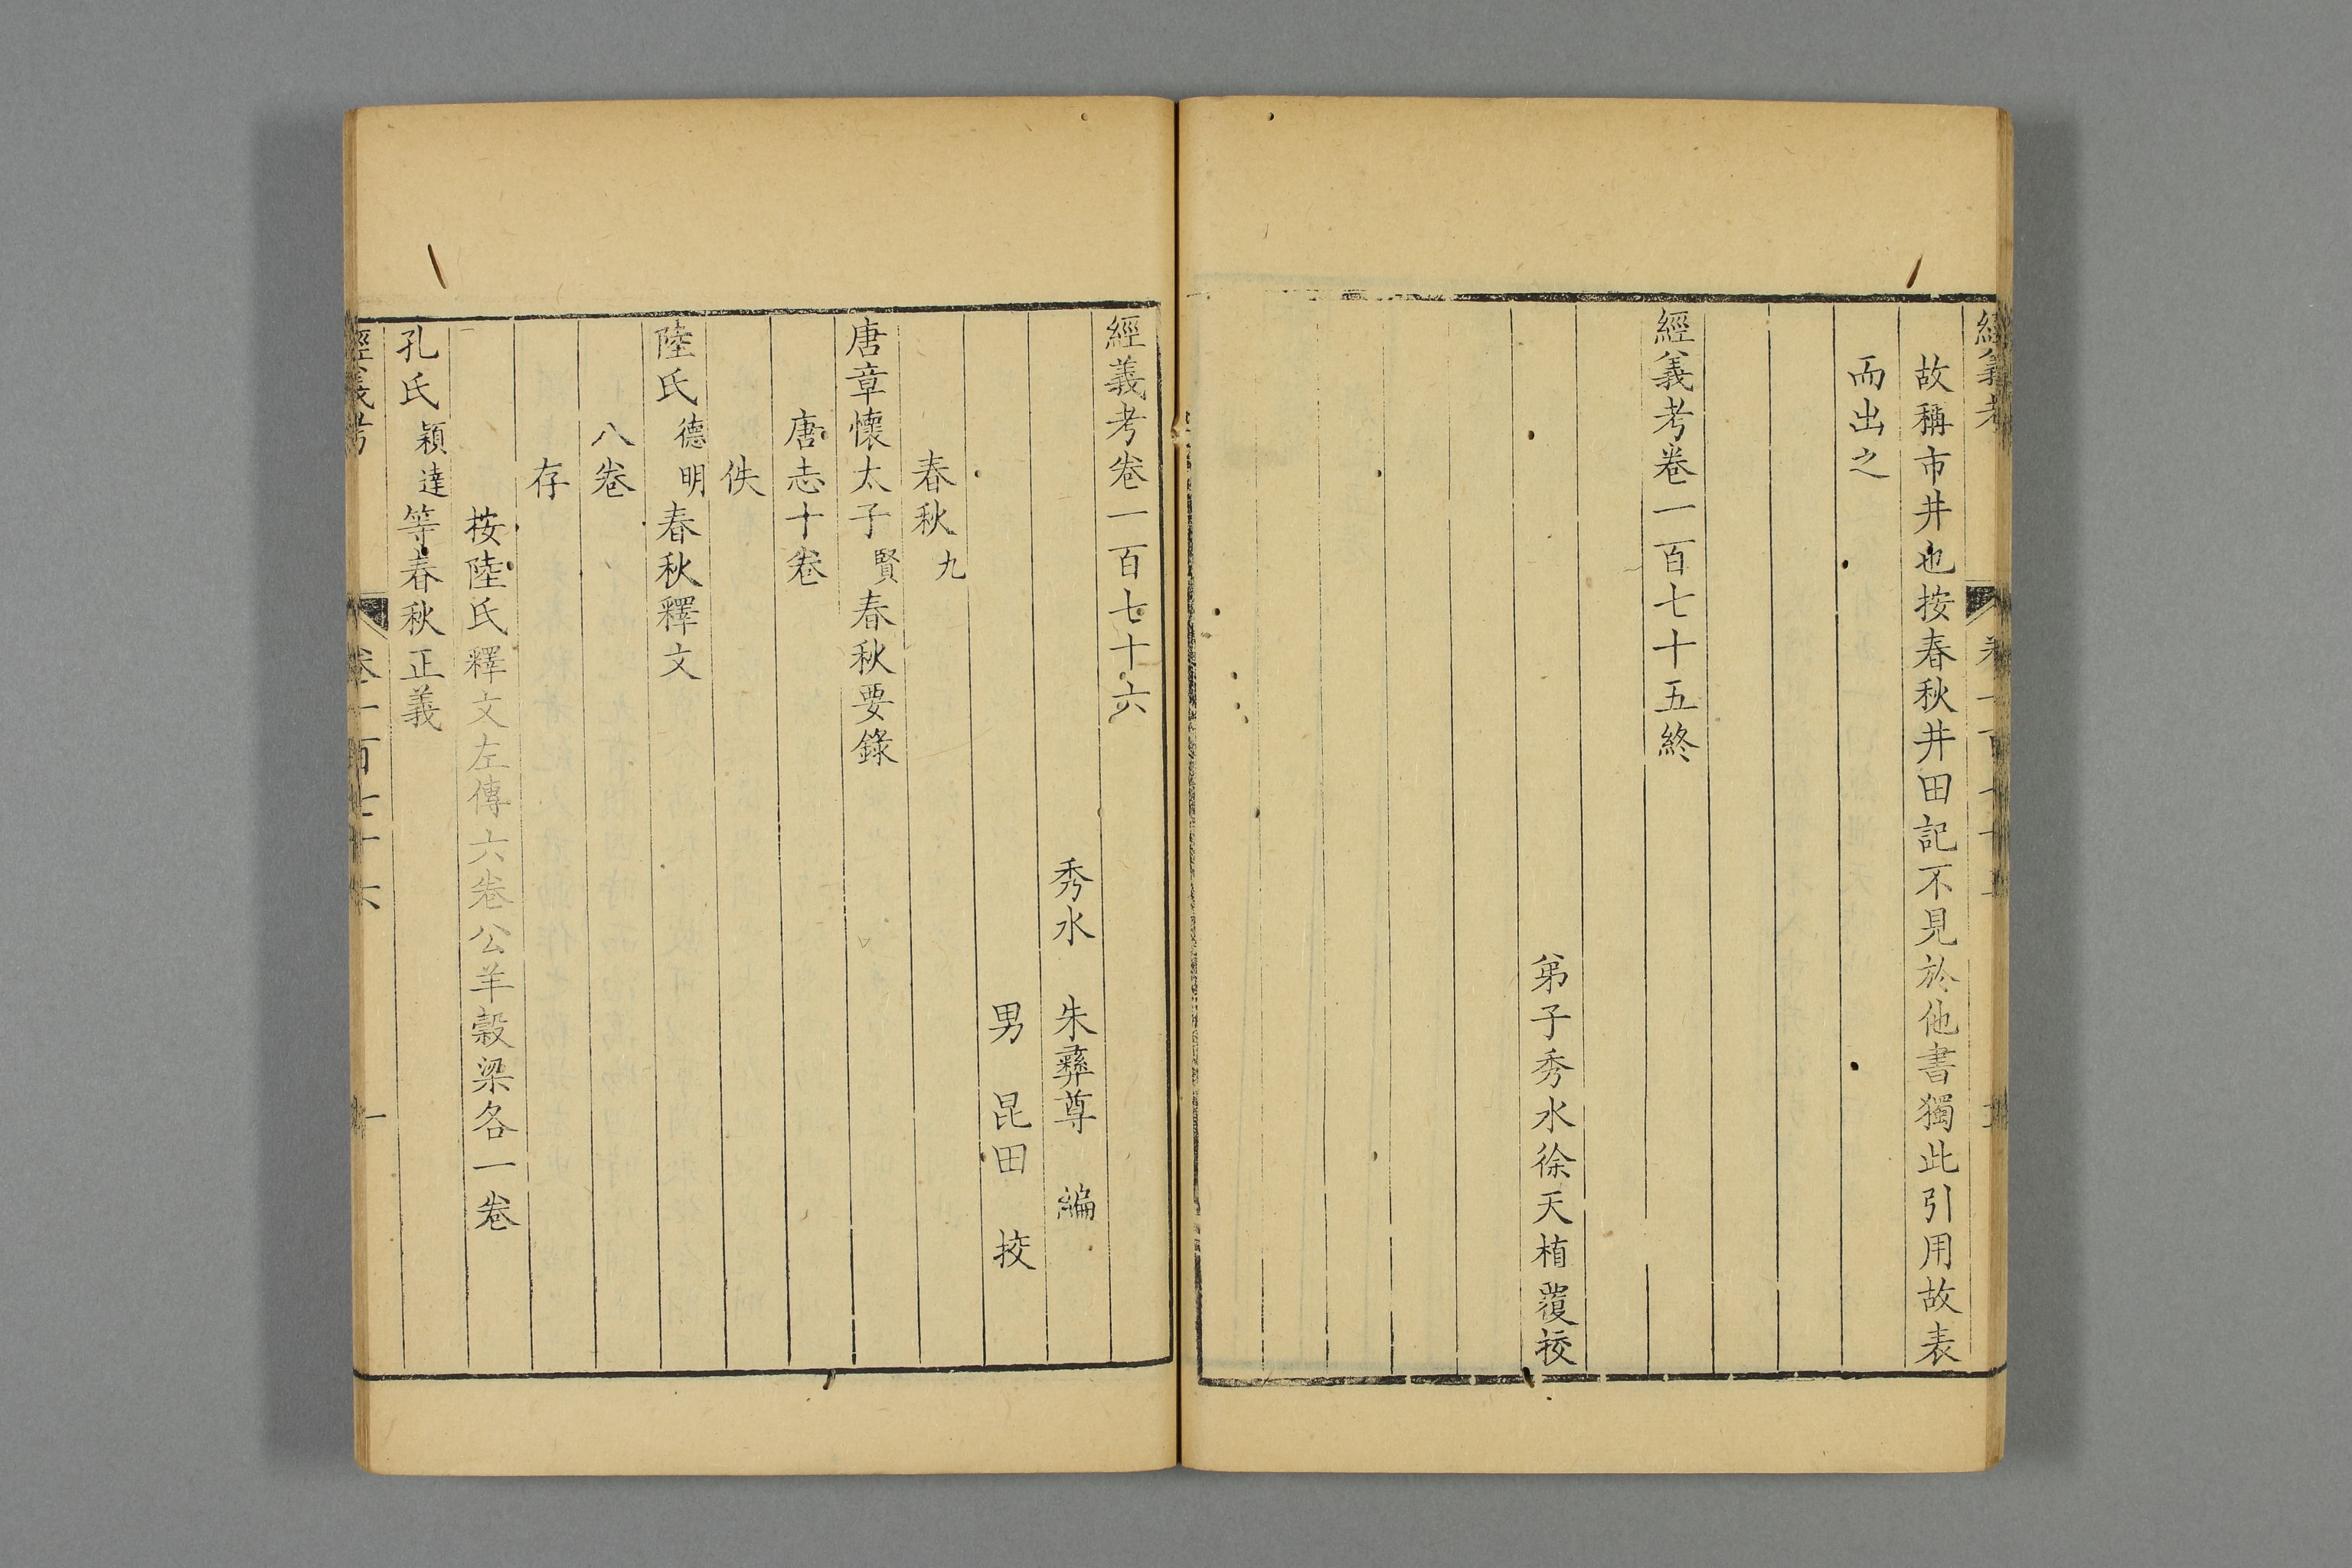 故稱市井也按春秋井田記不見於他書獨此引用故表
而出之
經義考卷一百七十五終
弟子秀水徐天植覆挍
經義考卷一百七十六
秀水 朱彝尊 編
男 昆田 挍
春秋九
唐章懷太子賢春秋要錄
唐志十卷
佚
陸氏德明春秋釋文
八卷
存
按陸氏釋文左傳六卷公羊穀梁各一卷
孔氏穎達等春秋正義
經義考 卷一百七十六 一